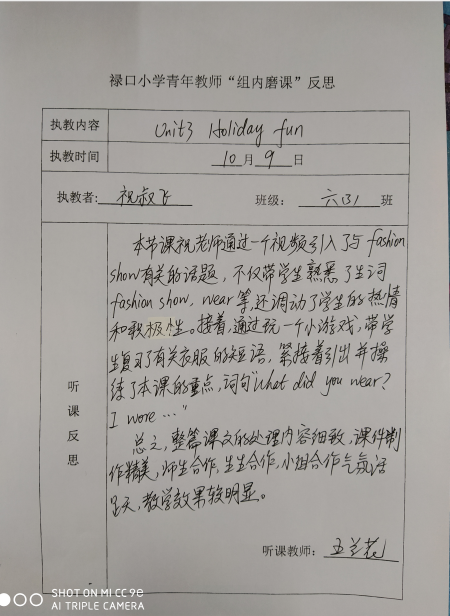 禄口小学青年教师“组内磨课”反思
执教内容 Unit3 Holiday fun
执教时间 10月9日
执教者: 祝叔飞 班级: 六(3) 班
听课反思
本节课祝老师通过一个视频引入了与fashion
show有关的话题，不仅带学生熟悉了生词
fashion show, wear等,还调动了学生的热情
和积极性。接着,通过玩一个小游戏,带学
生复习了有关衣服的短语，紧接着引出并操
练了本课的重点,词句"What did you wear?
I wore …"
总之,整篇课文的处理内容细致,课件制
作精美,师生合作,生生合作,小组合作气氛活
跃,教学效果较明显。
听课教师: 王兰花
SHOT ON MI CC 9e
AI TRIPLE CAMERA